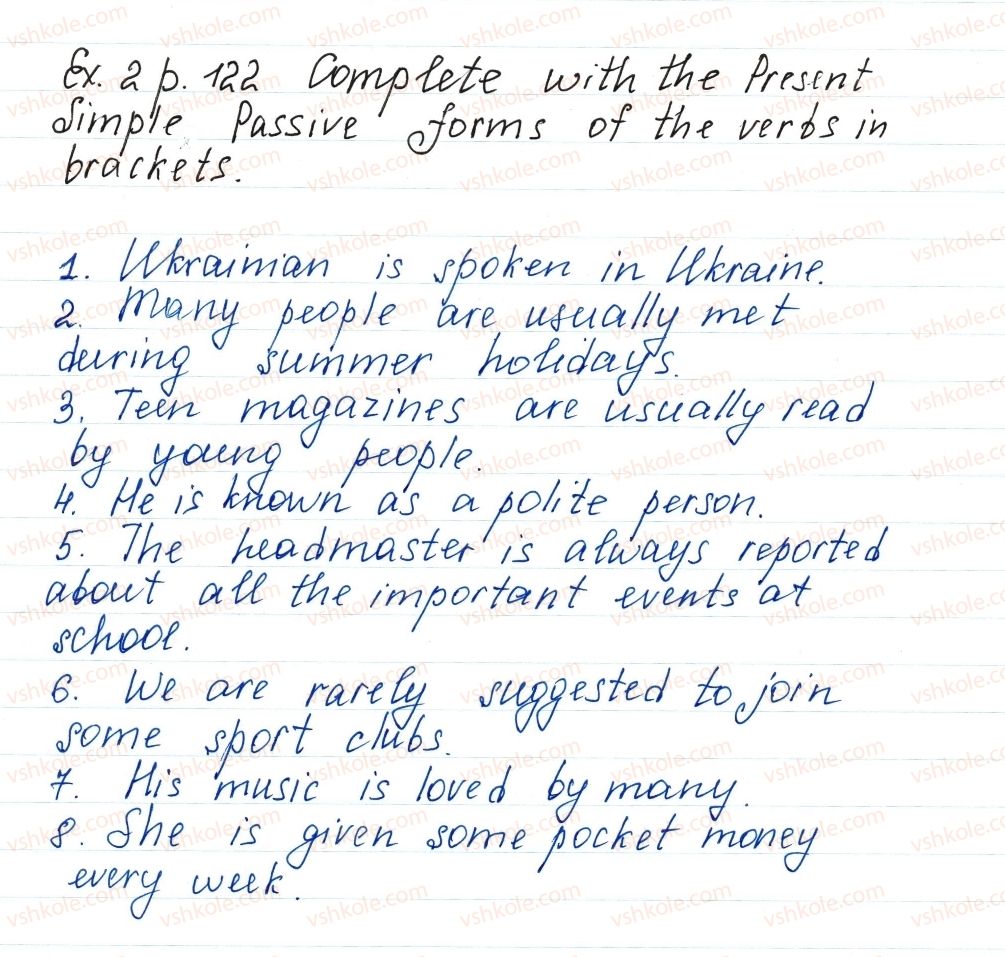 Ex. 2 p. 122 Complete with the Present
Simple Passive forms of the verbs in
brackets.
1. Ukrainian is spoken in Ukraine.
2. Many people are usually met
during summer holidays.
3. Teen magazines are usually read
by young people.
4. He is known as a polite person.
5. The headmaster is always reported
about all the important events at
school.
6. We are rarely suggested to join
some sport clubs.
7. His music is loved by many.
8. She is given some pocket money
every week.
vshkole.com